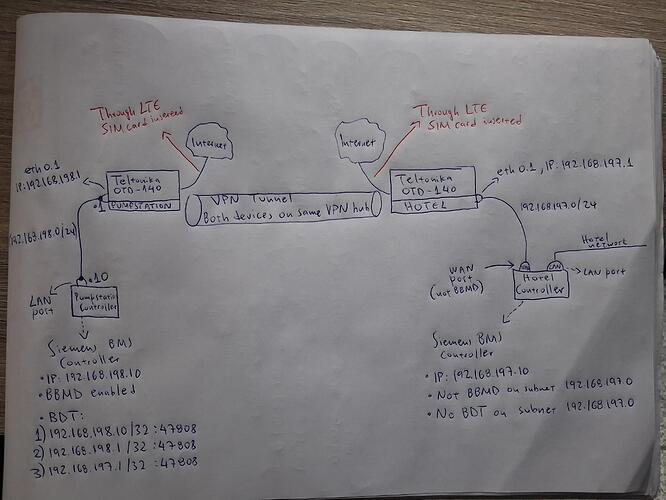 Through LTE
SIM card inserted
Through LTE
SIM card inserted
Internet
Internet
eth 0.1
IP:192.168.198.1
Teltonika
OTD-140
PUMPSTATION
.1
VPN Tunnel
Both devices on same VPN hub
Teltonika
OTD-140
HOTEL
eth 0.1, IP: 192.168.197.1
192.168.197.0/24
(192.168.198.0/24)
Hotel
network
.10
LAN
port
Pumpstation
Controller
WAN
port
(not BBMD)
WAN
LAN
Hotel
Controller
LAN port
Siemens BMS
Controller
• IP: 192.168.198.10
• BBMD enabled
• BDT:
1) 192.168.198.10/32 :47808
2) 192.168.198.1 /32 :47808
3) 192.168.197.1 /32 :47808
Siemens BMS
Controller
• IP: 192.168.197.10
• Not BBMD on subnet 192.168.197.0
• No BDT on subnet 192.168.197.0